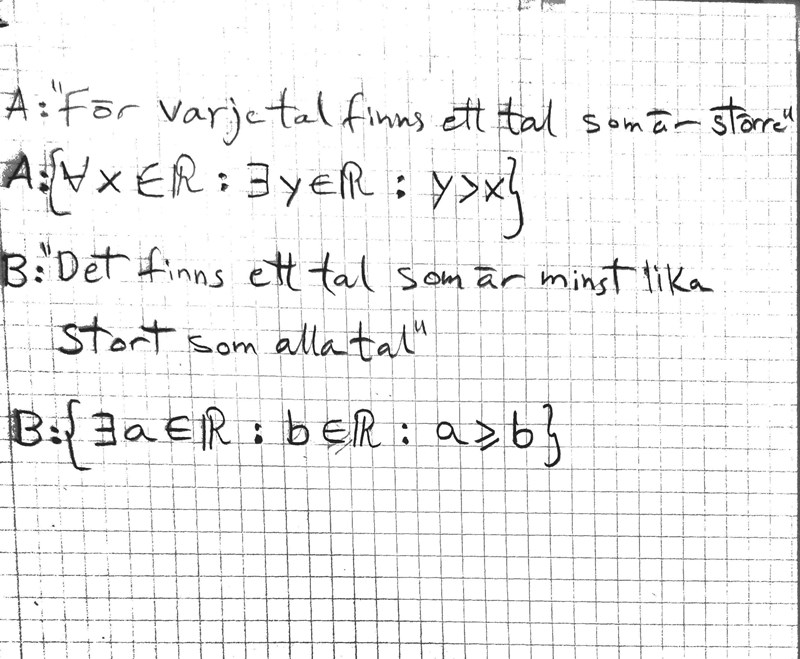 A:"För varje tal finns ett tal som är större"
A:{∀x∈ℝ : ∃y∈ℝ : y>x}
B:"Det finns ett tal som är minst lika
stort som alla tal"
B:{∃a∈ℝ : b∈ℝ : a⩾b}